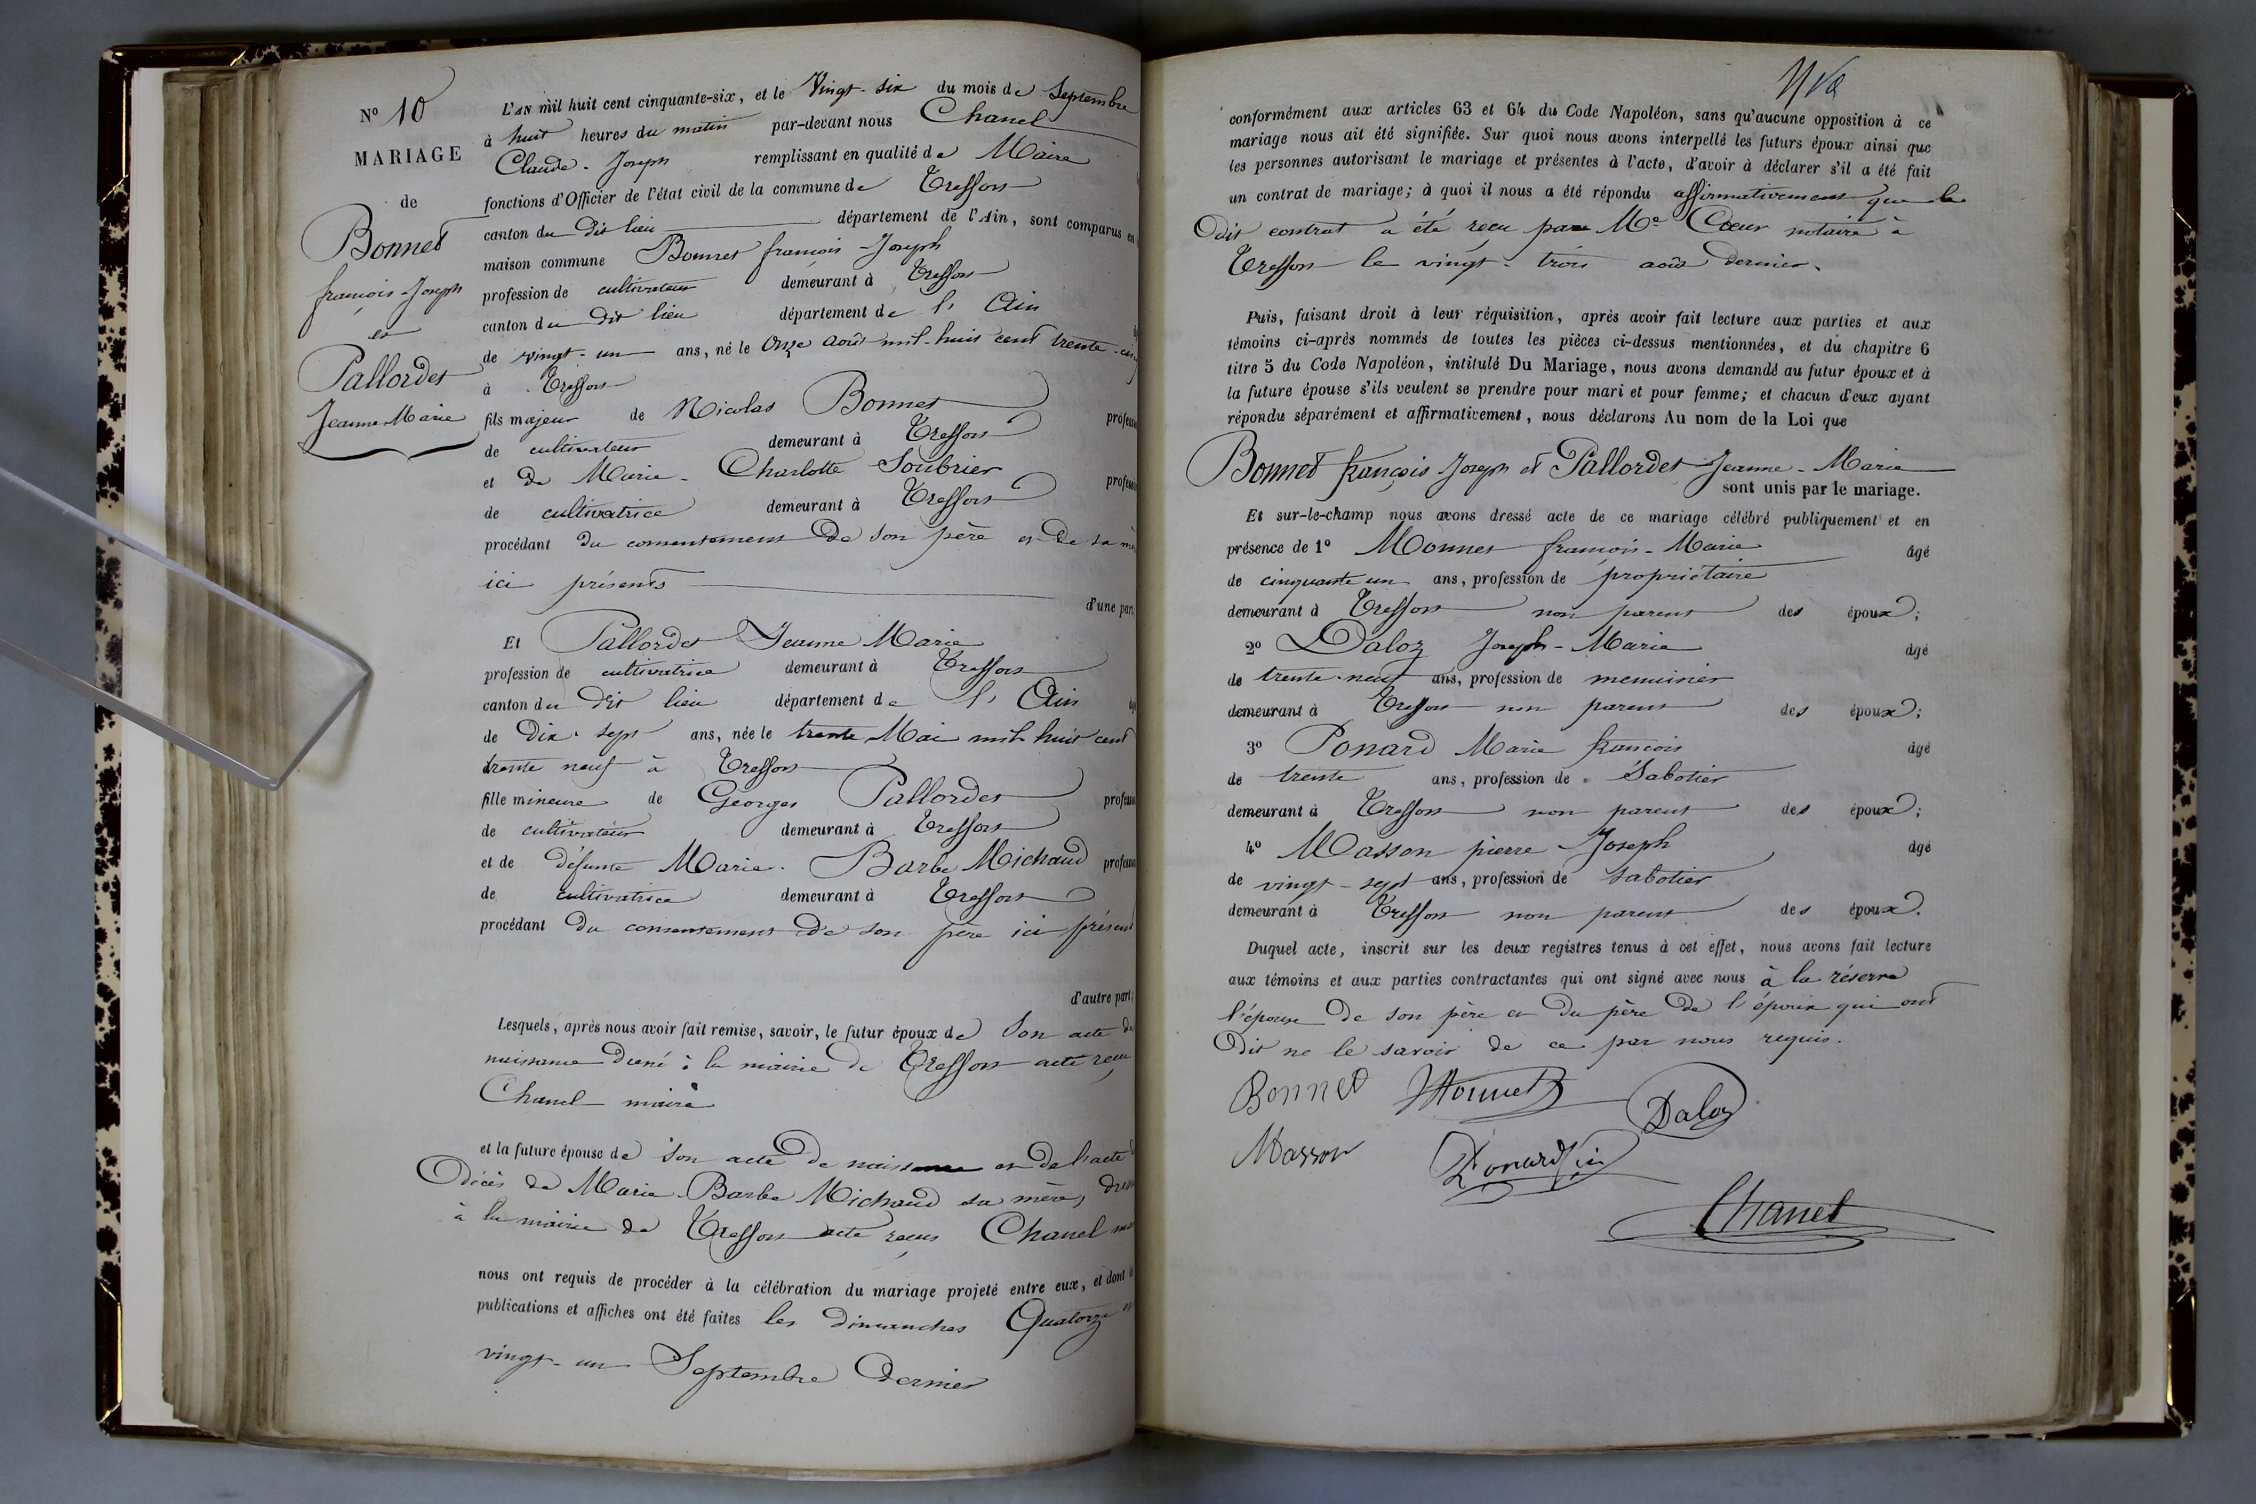 N° 10
MARIAGE
de
Bonnet
françois-Joseph
et
Pallordet
Jeanne Marie
L'AN mil huit cent cinquante-six, et le Vingt-six du mois de Septembre
à huit heures du matin par-devant nous Chanel
Claude-Joseph remplissant en qualité de Maire
fonctions d'Officier de l'état civil de la commune de Treffort
canton du dit lieu département de l'Ain, sont comparus en
maison commune Bonnet françois-Joseph
profession de cultivateur demeurant à Treffort
canton du dit lieu département de l'Ain
de vingt-un ans, né le Onze août mil-huit cent trente-cinq
à Treffort
fils majeur de Nicolas Bonnet
de cultivateur demeurant à Treffort
et de Marie-Charlotte Soubrier
de cultivatrice demeurant à Treffort
procédant du consentement de son père et de sa
ici présents
d'une part,
Et Pallordet Jeanne Marie
profession de cultivatrice demeurant à Treffort
canton du dit lieu département de l'Ain
de Dix-sept ans, née le trente Mai mil huit cent
trente neuf à Treffort
fille mineure de Georges Pallordet
de cultivateur demeurant à Treffort
et de défunte Marie-Barbe Michaud
de cultivatrice demeurant à Treffort
procédant du consentement de son père ici présent
d'autre part;
Lesquels, après nous avoir fait remise, savoir, le futur époux de son acte de
naissance à la mairie de Treffort acte reçu
Chanel maire
et la future épouse de son acte de naissance et de l'acte
décès de Marie-Barbe Michaud sa mère,
à la mairie de Treffort acte reçus Chanel
nous ont requis de procéder à la célébration du mariage projeté entre eux, et dont
publications et affiches ont été faites les dimanches Quatorze et
vingt-un Septembre Dernier
conformément aux articles 63 et 64 du Code Napoléon, sans qu'aucune opposition à ce
mariage nous ait été signifiée. Sur quoi nous avons interpellé les futurs époux ainsi que
les personnes autorisant le mariage et présentes à l'acte, d'avoir à déclarer s'il a été fait
un contrat de mariage; à quoi il nous a été répondu affirmativement que le
Dit contrat a été reçu par Me Cœur notaire à
Treffort le vingt-trois août dernier.
Puis, faisant droit à leur réquisition, après avoir fait lecture aux parties et aux
témoins ci-après nommés de toutes les pièces ci-dessus mentionnées, et du chapitre 6
titre 5 du Code Napoléon, intitulé Du Mariage, nous avons demandé au futur époux et à
la future épouse s'ils veulent se prendre pour mari et pour femme; et chacun d'eux ayant
répondu séparément et affirmativement, nous déclarons Au nom de la Loi que
Bonnet françois Joseph et Pallordet Jeanne-Marie
sont unis par le mariage.
Et sur-le-champ nous avons dressé acte de ce mariage célébré publiquement et en
présence de 1° Monnet françois-Marie âgé
de cinquante un ans, profession de propriétaire
demeurant à Treffort non parent des époux;
2° Daloz Joseph-Marie âgé
de trente-neuf ans, profession de menuisier
demeurant à Treffort non parent des époux;
3° Ponard Marie françois âgé
de trente ans, profession de Sabotier
demeurant à Treffort non parent des époux;
4° Masson pierre Joseph âgé
de vingt-sept ans, profession de sabotier
demeurant à Treffort non parent des époux.
Duquel acte, inscrit sur les deux registres tenus à cet effet, nous avons fait lecture
aux témoins et aux parties contractantes qui ont signé avec nous à la réserve
l'épouse de son père et du père de l'époux qui ont
Dit ne le savoir de ce par nous requis.
Bonnet Monnet Daloz
Masson Ponard
Chanel